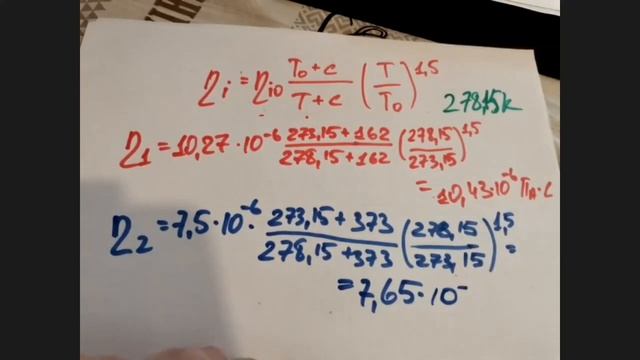 η_i = η_i0 (T₀+C)/(T+C) (T/T₀)^1,5
278,15K
η₁ = 10,27·10⁻⁶ (273,15+162)/(278,15+162) (278,15/273,15)^1,5
= 10,43·10⁻⁶ Па·с
η₂ = 7,5·10⁻⁶· (273,15+373)/(278,15+373) (278,15/273,15)^1,5 =
= 7,65·10⁻